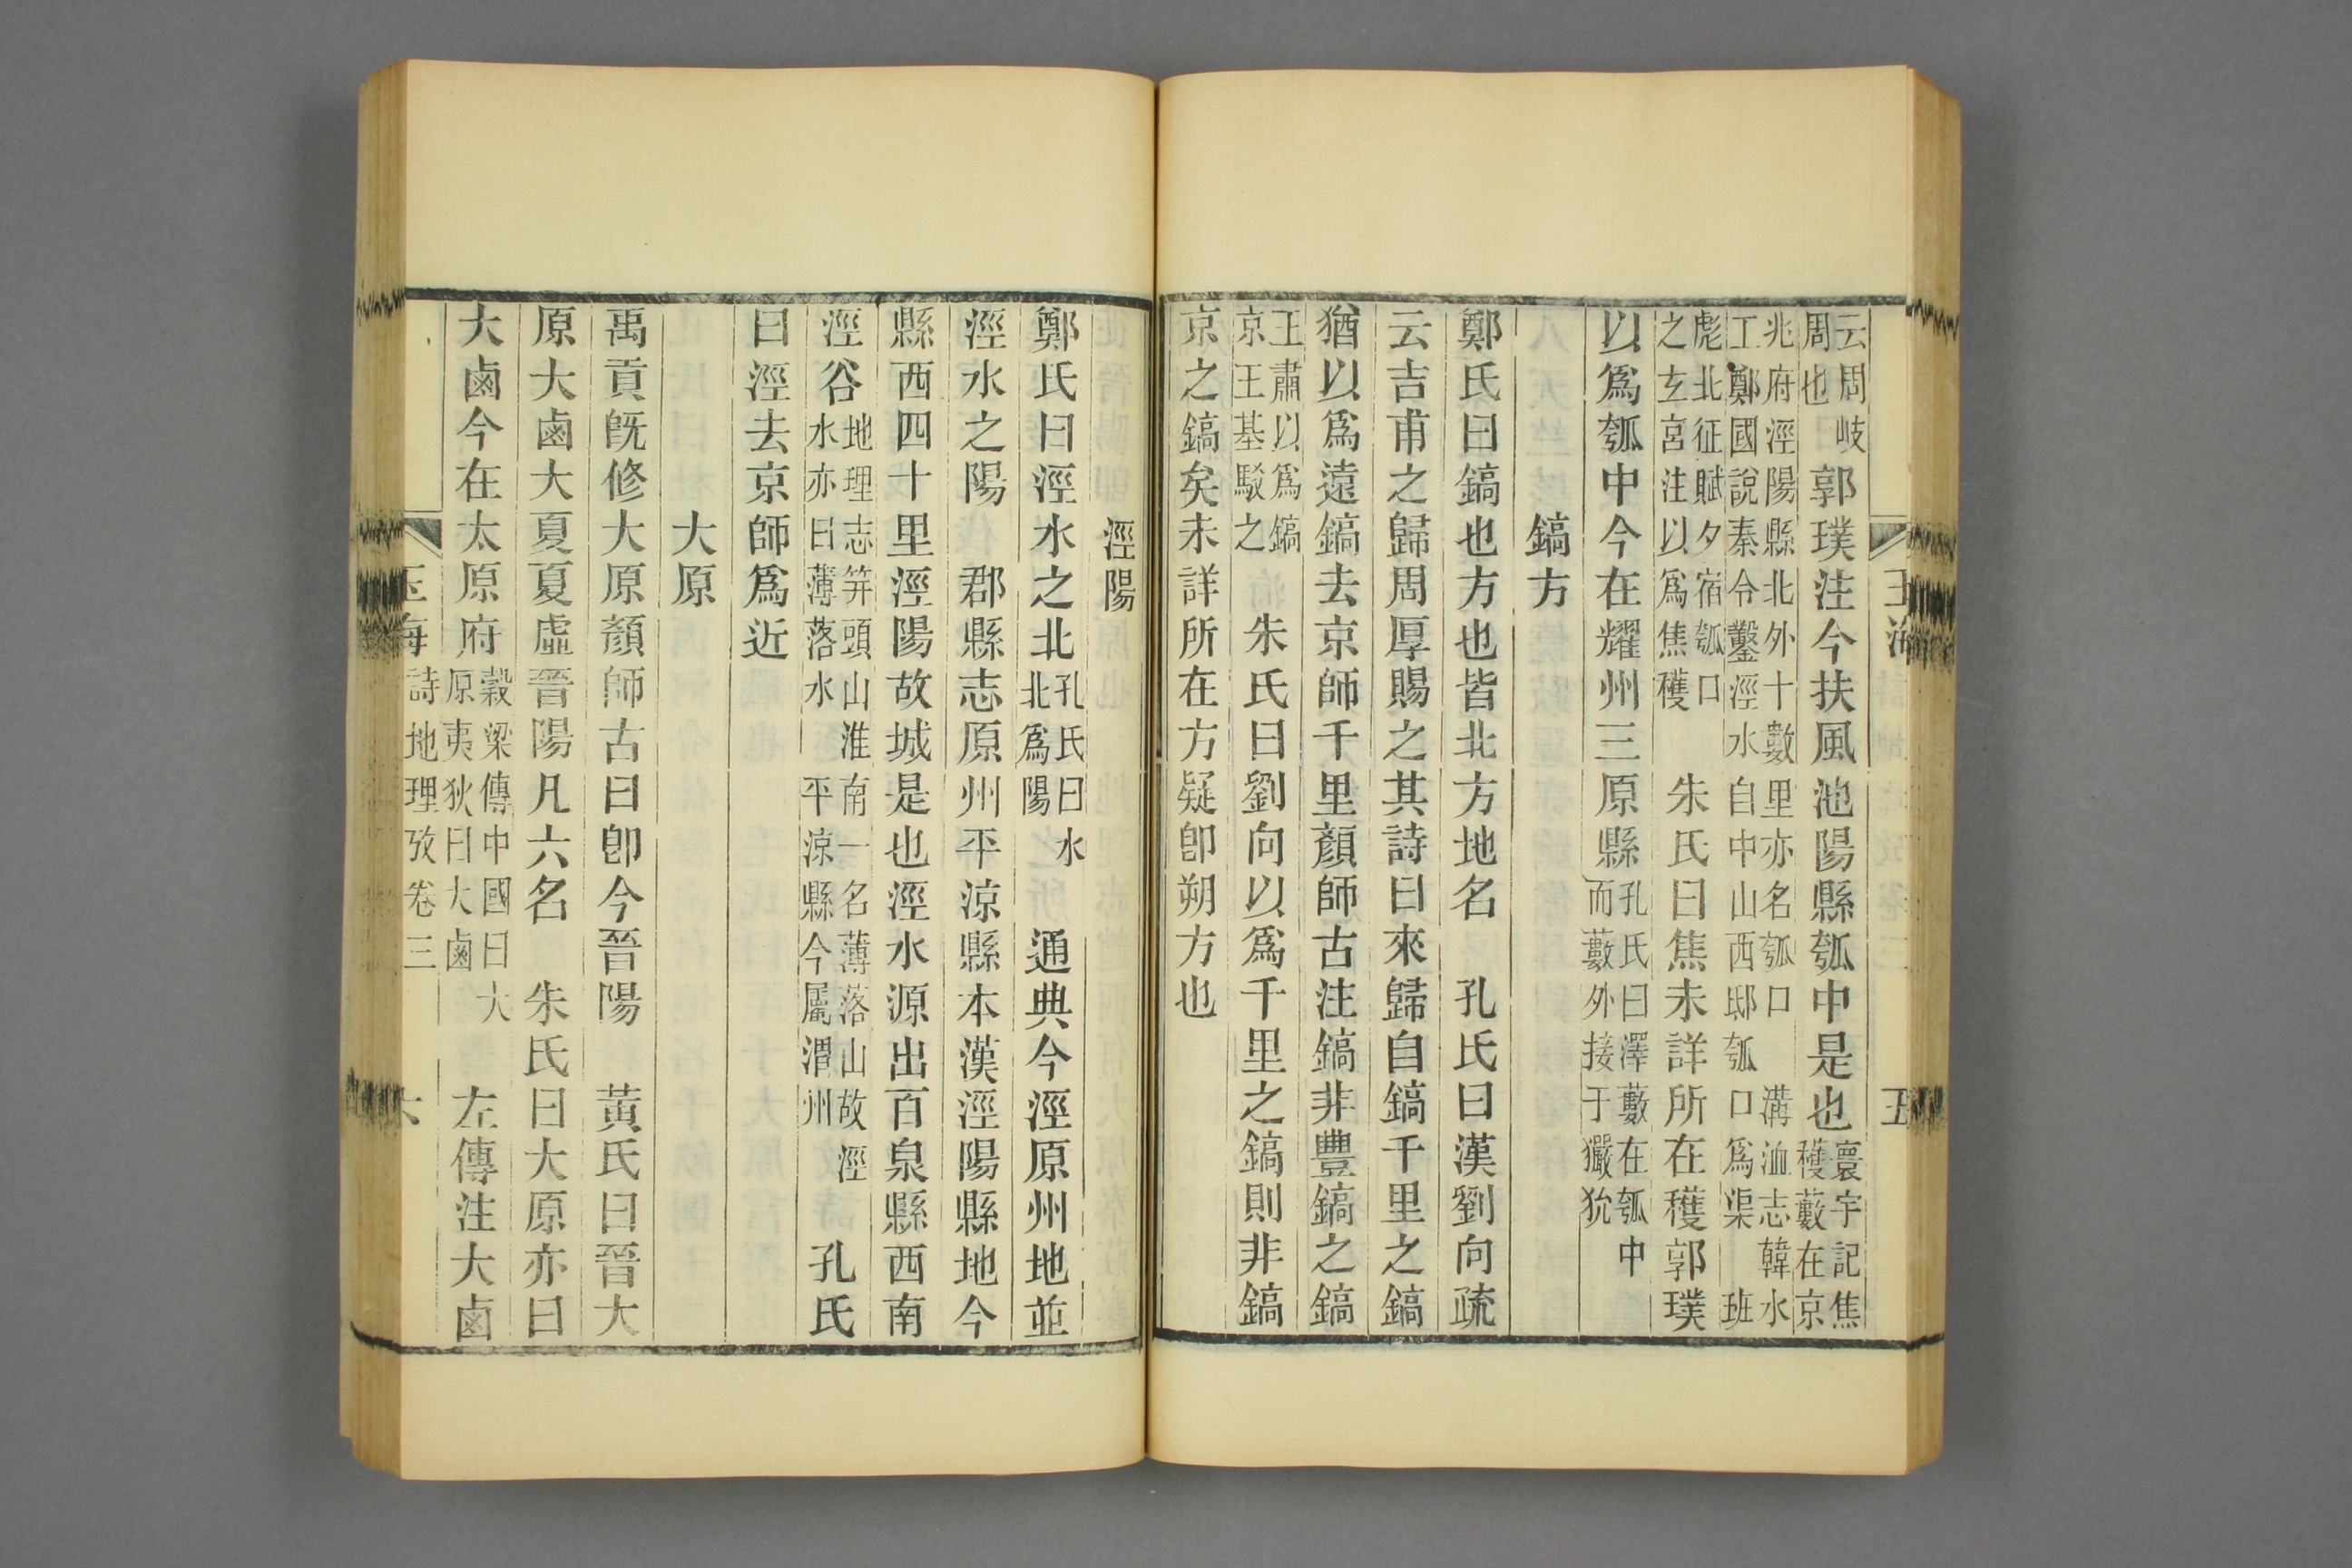 云周岐周也郭璞注今扶風池陽縣瓠中是也寰宇記焦穫藪在京
兆府涇陽縣北外十數里亦名瓠口 溝洫志韓水工鄭國說秦令鑿涇水自中山西邸瓠口爲渠 班
彪北征賦夕宿瓠口之玄宮注以爲焦穫 朱氏曰焦未詳所在穫郭璞
以爲瓠中今在耀州三原縣孔氏曰澤藪在瓠中而藪外接于玁狁
鎬方
鄭氏曰鎬也方也皆北方地名 孔氏曰漢劉向疏
云吉甫之歸周厚賜之其詩曰來歸自鎬千里之鎬
猶以爲遠鎬去京師千里顏師古注鎬非豐鎬之鎬
王肅以爲鎬京王基駁之 朱氏曰劉向以爲千里之鎬則非鎬
京之鎬矣未詳所在方疑卽朔方也
涇陽
鄭氏曰涇水之北孔氏曰水北爲陽 通典今涇原州地並
涇水之陽 郡縣志原州平涼縣本漢涇陽縣地今
縣西四十里涇陽故城是也涇水源出百泉縣西南
涇谷地理志筓頭山淮南一名薄落山故涇水亦曰薄落水 平涼縣今屬渭州 孔氏
曰涇去京師爲近
大原
禹貢旣修大原顏師古曰卽今晉陽 黃氏曰晉大
原大鹵大夏夏虛晉陽凡六名 朱氏曰大原亦曰
大鹵今在太原府穀梁傳中國曰大原夷狄曰大鹵 左傳注大鹵
玉海 詩地理攷卷三 六